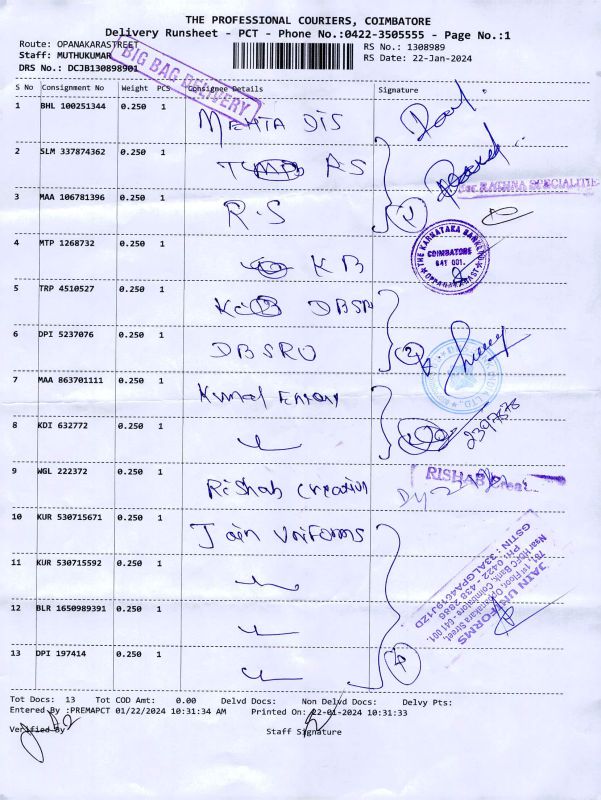 THE PROFESSIONAL COURIERS, COIMBATORE
Delivery Runsheet - PCT - Phone No.:0422-3505555 - Page No.:1
Route: OPANAKARASTREET
RS No.: 1308989
Staff: MUTHUKUMAR
RS Date: 22-Jan-2024
DRS No.: DCJB130898901
BIG BAG DELIVERY
S No Consignment No Weight PCS Consignee Details Signature
1 BHL 100251344 0.250 1 MEHTA DIS
2 SLM 337874362 0.250 1 RS
RACHNA SPECIALITIE
3 MAA 106781396 0.250 1 R.S
4 MTP 1268732 0.250 1 KB
THE KARNATAKA BANK LTD
COIMBATORE
641 001.
OPPANAKARA ST
5 TRP 4510527 0.250 1 DBSR
6 DPI 5237076 0.250 1 DBSRU 2
7 MAA 863701111 0.250 1
8 KDI 632772 0.250 1
9 WGL 222372 0.250 1 Rishab Creation
RISHAB
10 KUR 530715671 0.250 1 Jain Uniforms
JAIN UNIFORMS
781, 1st Floor, Oppanakara Street,
Near HDFC Bank, Coimbatore - 641 001.
PH: 0422 - 438 2886
GSTIN : 33ALGPA4619J1ZD
11 KUR 530715592 0.250 1
12 BLR 1650989391 0.250 1
13 DPI 197414 0.250 1 4
Tot Docs: 13 Tot COD Amt: 0.00 Delvd Docs: Non Delvd Docs: Delvy Pts:
Entered By :PREMAPCT 01/22/2024 10:31:34 AM Printed On: 22-01-2024 10:31:33
Verified By Staff Signature